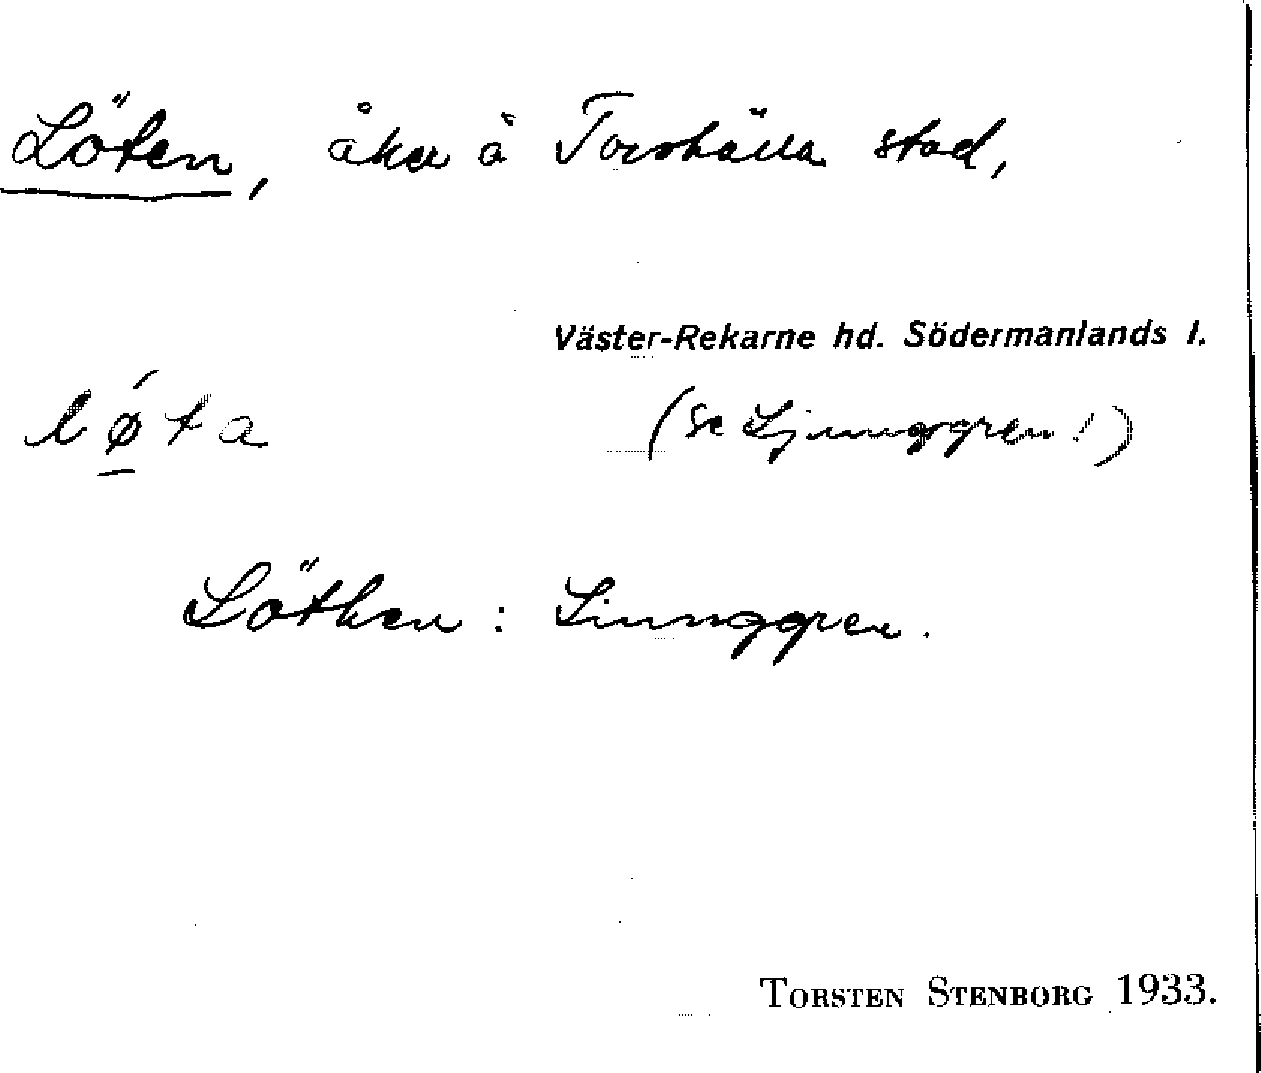 Löten, åker å Torshälla stad,
Väster-Rekarne hd. Södermanlands l.
lǿ̲ta (se Ljunggren!)
Löthen: Linnggren.
TORSTEN STENBORG 1933.